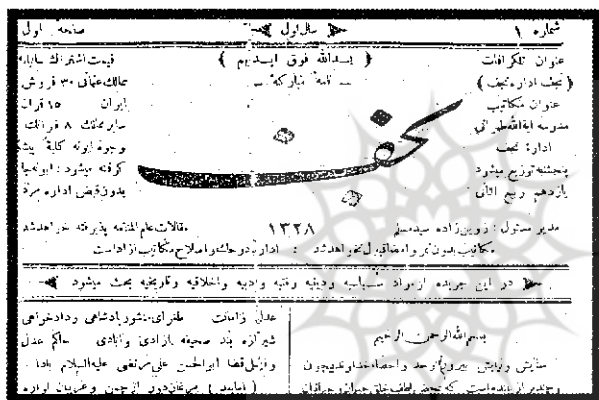 شماره ۱
سال اول
صفحه اول
عنوان تلگرافات
( نجف اداره نجف )
عنوان مکاتیب
مدرسه آیةالله طهرانی
ادارهٔ نجف
پنجشنبه توزیع میشود
یازدهم ربیع الثانی
( یدالله فوق ایدیهم )
نامهٔ مبارکهٔ
نجف
۱۳۲۸
قیمت اشتراك سالیانه
ممالك عثمانی ۳۰ قروش
ایران ۱۵ قران
سایر ممالك ۸ فرانك
وجوه ابونه کلیة پیش
گرفته میشود : ابونه‌ها
بدون قبض اداره
مدیر مسئول : زوین زاده سید مسلم
مقالات عام المنفعه پذیرفته خواهد شد
مکاتیب بدون تمر و امضا قبول نخواهد شد : اداره در حك و اصلاح مکاتیب آزاد است
در این جریده از مواد سیاسیه و دینیه و فنیه و ادبیه و اخلاقیه و تاریخیه بحث میشود
بسم الله الرحمن الرحیم
ستایش و نیایش بیرون از حد و احصاء خداوند بیچون
که بمحض لطف خلق
عدل و امانت طغرای منشور پادشاهی و دادخواهی
شیرازه بند صحیفه آزادی و آبادی حاکم عدل
ابوالحسن علی مرتضی علیه‌السلام